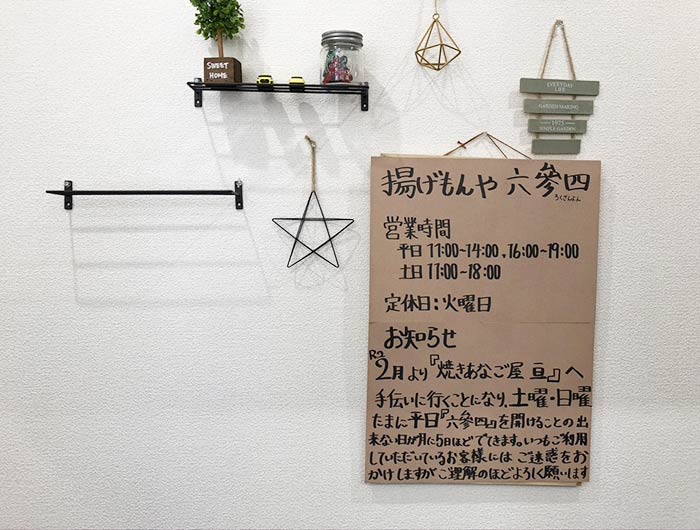 SWEET
HOME
EVERYDAY
LIFE
GARDEN MAKING
1975
SIMPLE GARDEN
揚げもんや 六參四
ろくさんよん
営業時間
平日 11:00~14:00、16:00~19:00
土日 11:00~18:00
定休日:火曜日
お知らせ
R2
2月より『焼きあなご屋 亘』へ
手伝いに行くことになり、土曜・日曜
たまに平日『六參四』を開けることの出
来ない日が月に5日ほどでてきます。いつもご利用
していただいているお客様には ご迷惑をお
かけしますがご理解のほどよろしく願います